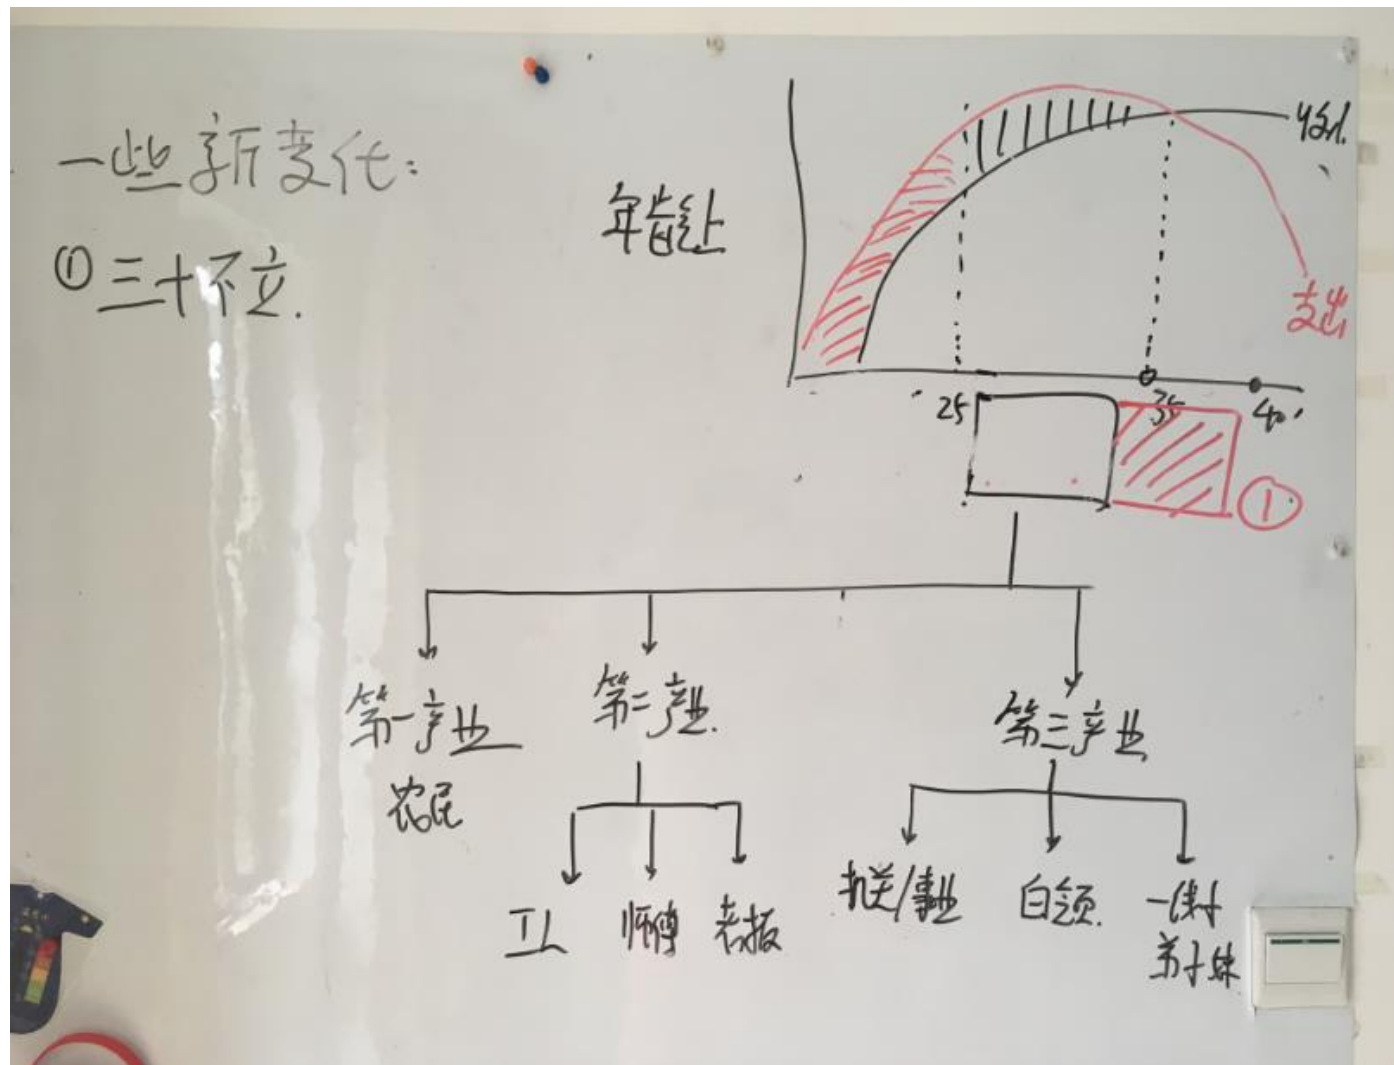 一些新变化：
①三十不立.
年龄上
收入
支出
25
35
40
①
第一产业
农民
第二产业.
工人
师傅
老板
第三产业
机关/事业
白领.
一线